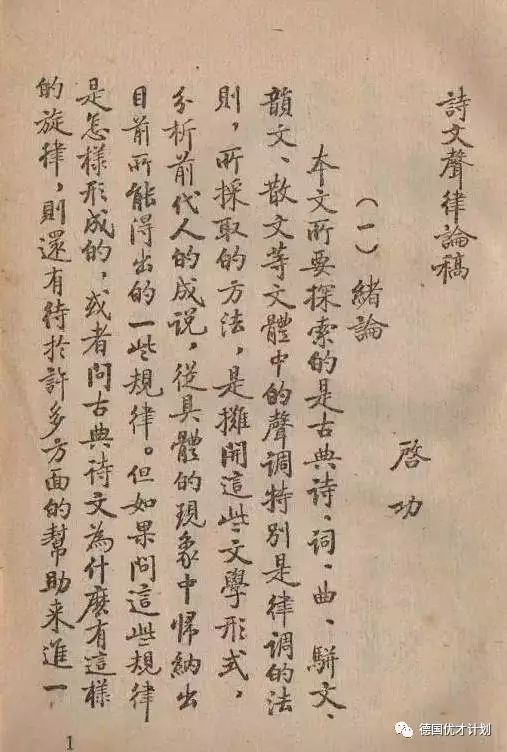 詩文聲律論稿
啓功
(一) 緒論
本文所要探索的是古典詩、詞、曲、駢文、
韻文、散文等文體中的聲調特別是律調的法
則,所採取的方法,是攤開這些文學形式,
分析前代人的成說,從具體的現象中歸納出
目前所能得出的一些規律。但如果問這些規律
是怎樣形成的,或者問古典詩文為什麽有這樣
的旋律,則還有待於許多方面的幫助来進一
1
德国优才计划